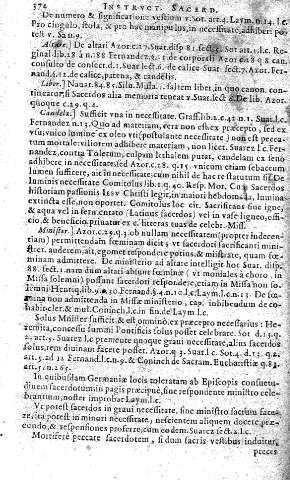 374 INSTRVCT. SACERD.
De numero & significatione vestium v. Sot. art. 4. Laym. n. 14. l. c.
Pro cingulo, stola, & pro hac manipulus, in necessitate, adhiberi po-
test v. Naua.
Altare.] De altari Azor. c. 27. Suar. disp. 81. sect. 5. Sot. art. l. c. Re-
ginal. lib. 28 à n. 188 Fernand. 72. 1 de corporali Azor. c. 28 q 8 cau.
consulto de consecr. d. 1. Suar. sect. 6. de calice Suar. sect. 7. Azor. Fer-
nand. 4. 12. de calice, patena, & candelis.
Liber.] Nauar. 84. 85. Silu. Missa. saltem liber, in quo canon con-
tineatur: si Sacerdos alia memoria teneat v. Suar. sect. 6. De lib. Azor.
quoque c. 29. q. 4.
Candela.] Sufficit vna in necessitate. Graff. lib. 2. c. 42 n. 1. Suar. l. c.
Fernandez n. 13. Quo ad materiam, cera non est ex præcepto, sed ex
vsu; vnico lumine ex oleo vti (postulante necessitate) non est pecca-
tum mortale: vilioremadhibere materiam, non licet. Suarez l. c. Fer-
nandez,
adhibere in necessitate: sed Azor. c. 28. q. 15.
luminis necessitate Comitolus lib. 1. q. 40. Resp. Mor. Cur Sacerdos
historiam passionis Iesv Christi legetit, in maiori hebdomada, lumina
extincta esse, non oportet. Comitolus loc. cit. Sacrificans sine igne,
& aqua vel in fermentato (Latinus sacerdos) vel in vase ligneo, offi-
cio, & beneficio, priuatur ex c. litteras tuas de celebr. Miss.
Minister.] Azor. c. 29. q. 3. ob nullam necessitatem (propter indecen-
tiam) permittendam fœminam dicit; vt sacerdoti sacrificanti mini-
stret. audeemait, ait, egomet respondere potius, & ministrare, quam fœ-
minam admittere. De ministerio ad altare intelligit hoc Suar. disp.
88. sect. 1. nam dum altari absunt fœminæ (vt moniales à choro, in
Missa solemni) possunt sacerdoti respondere, etiam in Missa non so-
lemni; Henriq. lib. 9. c. 20 Fernand. 1. 4. n. 10. l. c. Laym. l. c. n. 13. De fœmi-
na non admittenda in Missæ ministerio, cap. inhibeudum de co-
habi. cler. & mul. Coninch. l. c. in fin. de Laym. l. c.
Solus Minister sufficit, & est omninò ex præcepto necessarius: He-
remita, concessu summi Pontificis solus posset celebrare. Sot. d. 13. q.
2. art. 5. Suarez l. c premente quoque graui necessitate, alius sacerdos
solus, rem diuinam facere posset. Azor q. 3. Suar. l. c. Sot. 4. d. 13. q. 2.
art. 5. ad 12 Fernand. l. c. n. 9. & Coninch de Sacram. Eucharist. q. 83.
art. 5. n. 265.
In quibusdam Germaniæ locis toleratam ab Episcopis consuetu-
dinem sacerdotum in pagis præcipuè, sine respondente ministro cele-
brantium, noster improbat Laym. l. c.
Vt potest sacerdos in graui necessitate, sine ministro sacrum face-
re, ita potest in minori necessitate, nescientem aliquem docere, præ-
eundo, & responsiones proferre, cum eodem. Suarez sect. 2. l. c.
Mortiferè peccare sacerdotem, si dum sacris vestibus induitur,
preces